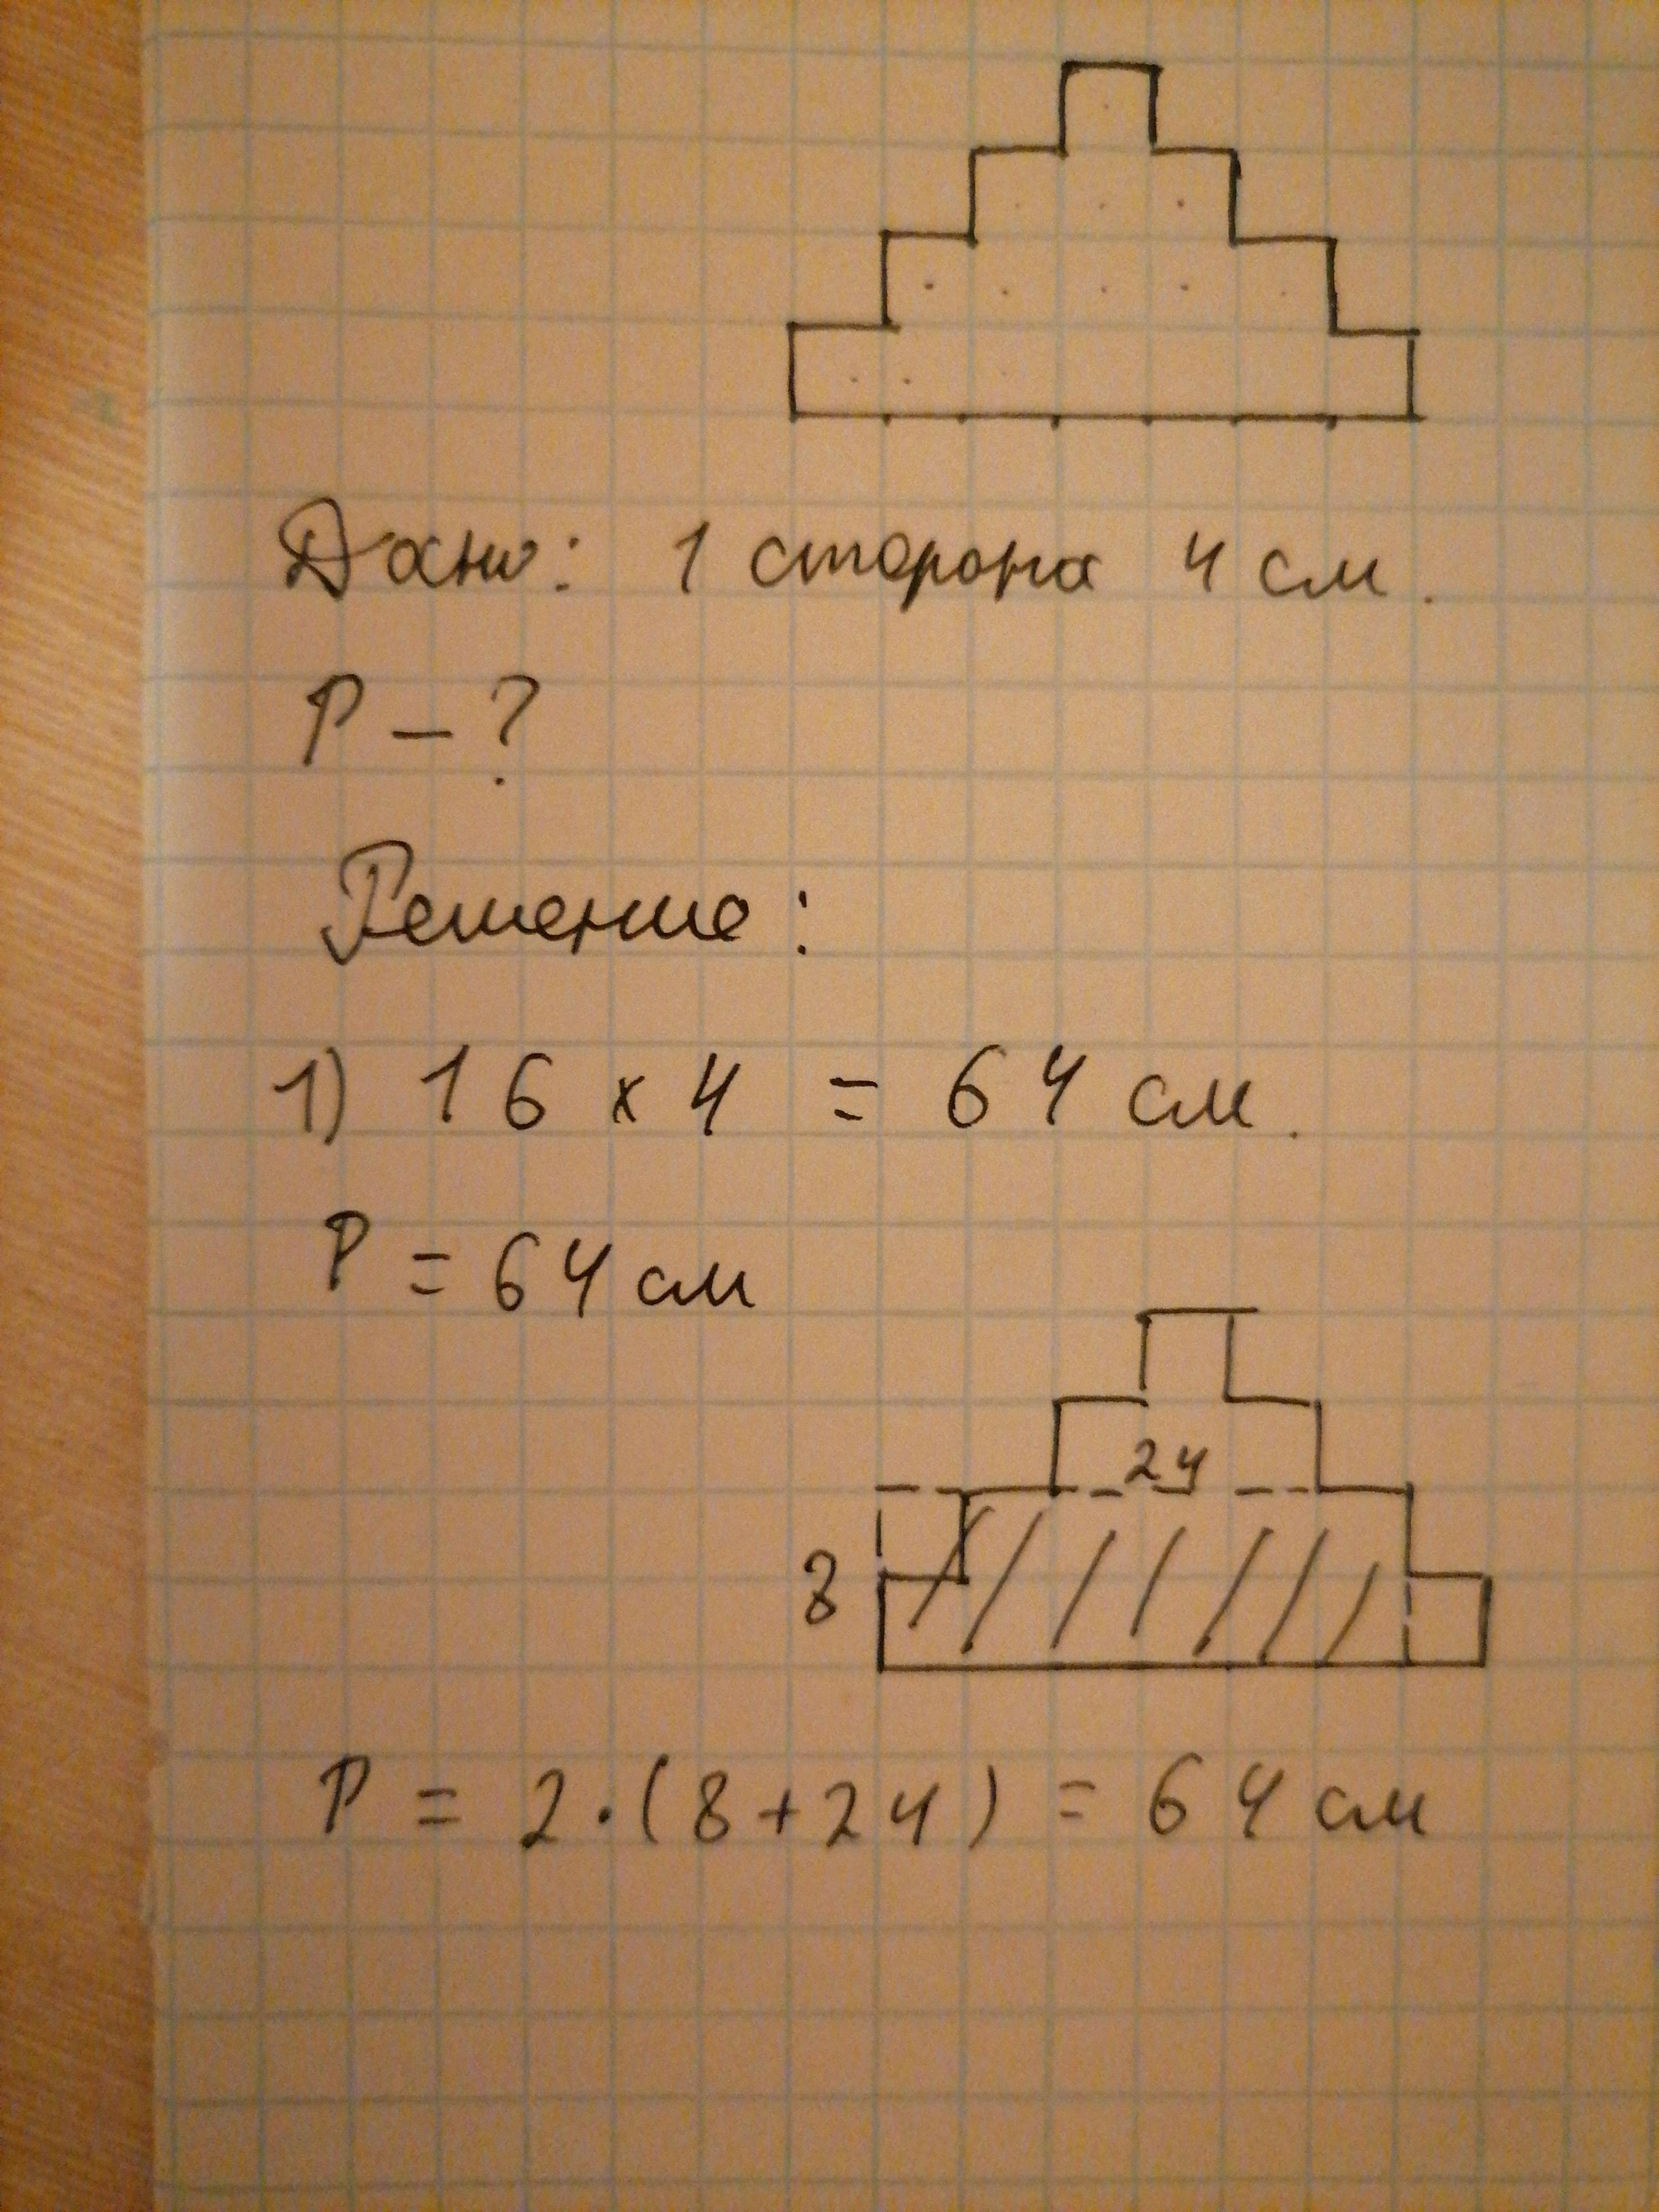 Дано: 1 сторона 4 см.
P – ?
Решение:
1) 16 x 4 = 64 см.
P = 64 см
24
8
P = 2·(8+24) = 64 см